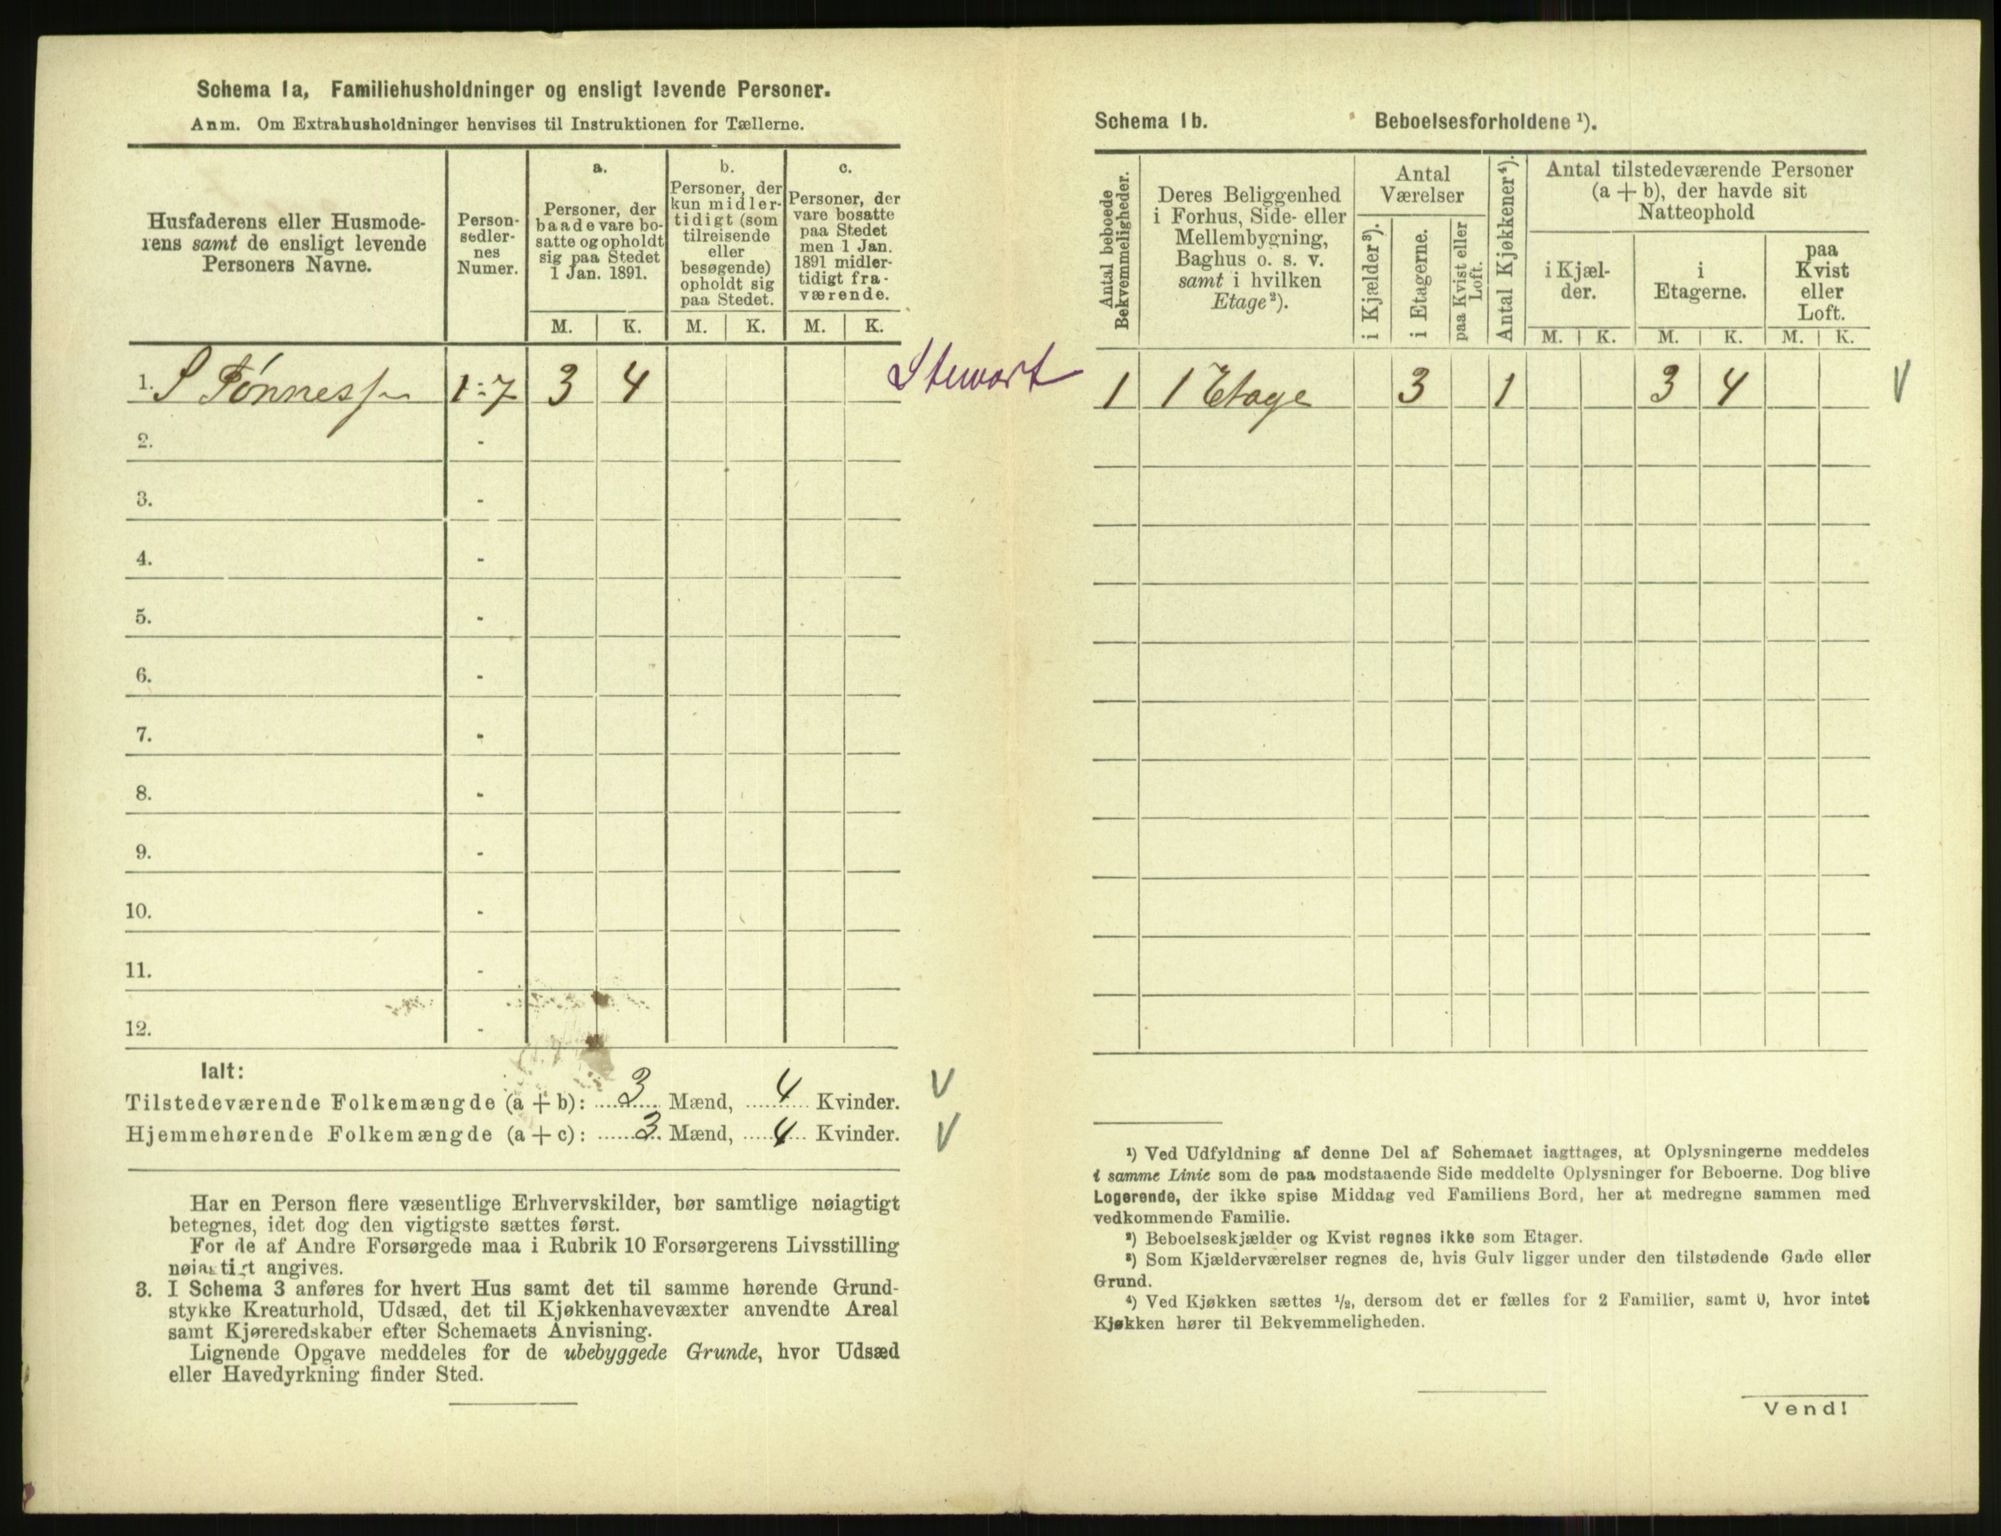 Schema 1a, Familiehusholdninger og ensligt levende Personer.
Anm. Om Extrahusholdninger henvises til Instruktionen for Tællerne.
Husfaderens eller Husmode-
rens samt de ensligt levende
Personers Navne.
Person-
sedler-
nes
Numer.
a.
Personer, der
baade vare bo-
satte og opholdt
sig paa Stedet
1 Jan. 1891.
M. K.
b.
Personer, der
kun midler-
tidigt (som
tilreisende
eller
besøgende)
opholdt sig
paa Stedet.
M. K.
c.
Personer, der
vare bosatte
paa Stedet
men 1 Jan.
1891 midler-
tidigt fra-
værende.
M. K.
1. S Tønnessen 1-7 3 4
Stewart
2. -
3. -
4. -
5. -
6. -
7. -
8. -
9. -
10. -
11. -
12. -
Ialt:
Tilstedeværende Folkemængde (a + b): 3 Mænd, 4 Kvinder. V
Hjemmehørende Folkemængde (a + c): 3 Mænd, 4 Kvinder. V
Har en Person flere væsentlige Erhvervskilder, bør samtlige nøiagtigt
betegnes, idet dog den vigtigste sættes først.
For de af Andre Forsørgede maa i Rubrik 10 Forsørgerens Livsstilling
nøiagtigt angives.
3. I Schema 3 anføres for hvert Hus samt det til samme hørende Grund-
stykke Kreaturhold, Udsæd, det til Kjøkkenhavevæxter anvendte Areal
samt Kjøreredskaber efter Schemaets Anvisning.
Lignende Opgave meddeles for de ubebyggede Grunde, hvor Udsæd
eller Havedyrkning finder Sted.
Schema 1b. Beboelsesforholdene ¹).
Antal beboede
Bekvemmeligheder.
Deres Beliggenhed
i Forhus, Side- eller
Mellembygning,
Baghus o. s. v.
samt i hvilken
Etage ²).
Antal
Værelser
i Kjælder ³).
i Etagerne.
paa Kvist eller
Loft.
Antal Kjøkkener ⁴).
Antal tilstedeværende Personer
(a + b), der havde sit
Natteophold
i Kjæl-
der.
M. K.
i
Etagerne.
M. K.
paa
Kvist
eller
Loft.
M. K.
1 1 Etage 3 1 3 4 V
¹) Ved Udfyldning af denne Del af Schemaet iagttages, at Oplysningerne meddeles
i samme Linie som de paa modstaaende Side meddelte Oplysninger for Beboerne. Dog blive
Logerende, der ikke spise Middag ved Familiens Bord, her at medregne sammen med
vedkommende Familie.
²) Beboelseskjælder og Kvist regnes ikke som Etager.
³) Som Kjælderværelser regnes de, hvis Gulv ligger under den tilstødende Gade eller
Grund.
⁴) Ved Kjøkken sættes ½, dersom det er fælles for 2 Familier, samt 0, hvor intet
Kjøkken hører til Bekvemmeligheden.
Vend!